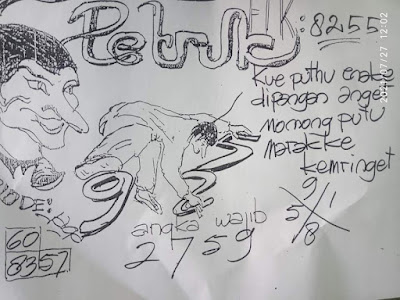 Petruk
: 8255
Kue puthu enake
dipangan anget
momong putu
marakke
kemringet
9
5 / 1
8
angka wajib
2759
60
8357
2021/07/27 12:02